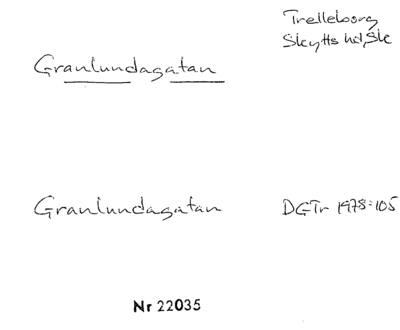 Trelleborg
Skytts hd, Sk
Granlundagatan
Granlundagatan
DGTr 1978:105
Nr 22035